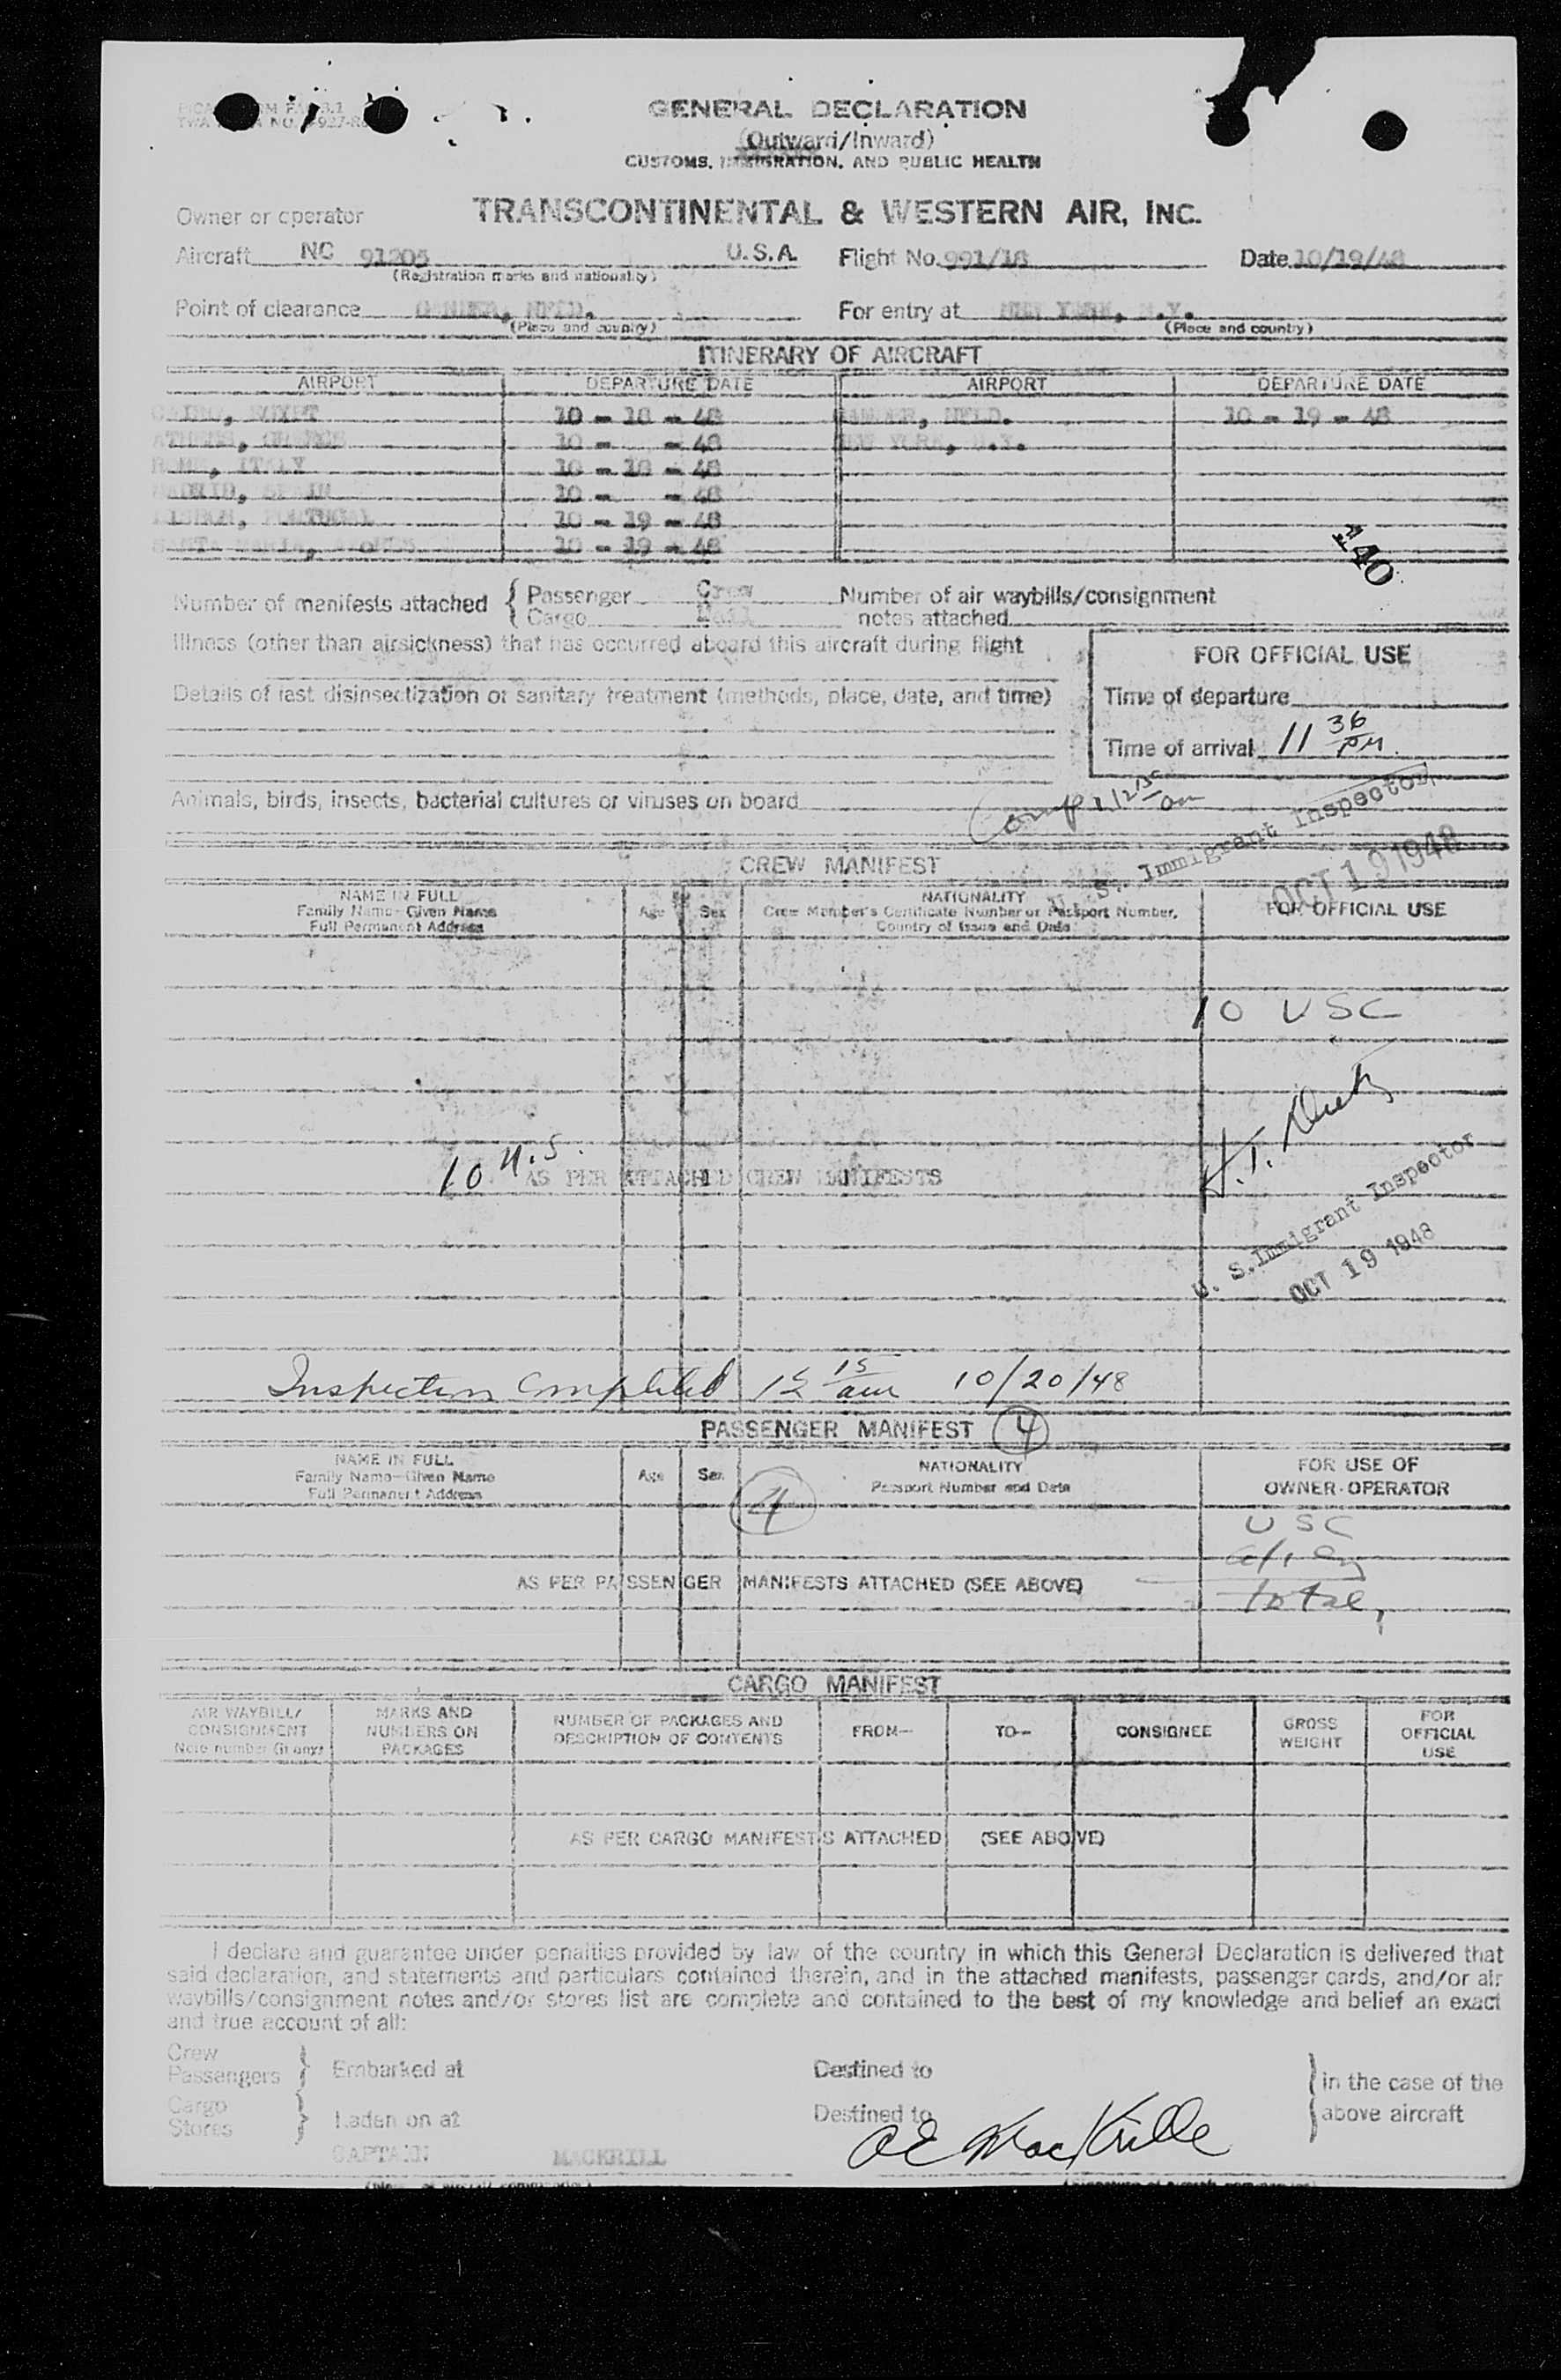 GENERAL DECLARATION
(Outward/Inward)
CUSTOMS, IMMIGRATION, AND PUBLIC HEALTH
Owner or operator TRANSCONTINENTAL & WESTERN AIR, INC.
Aircraft NC 91205 U.S.A. Flight No. 991/18 Date 10/19/48
(Registration marks and nationality)
Point of clearance GANDER, NFLD. For entry at NEW YORK, N.Y.
(Place and country) (Place and country)
ITINERARY OF AIRCRAFT
AIRPORT DEPARTURE DATE AIRPORT DEPARTURE DATE
CAIRO, EGYPT 10 - 18 - 48 GANDER, NFLD. 10 - 19 - 48
ATHENS, GREECE 10 - - 48 NEW YORK, N.Y.
ROME, ITALY 10 - 18 - 48
MADRID, SPAIN 10 - - 48
LISBON, PORTUGAL 10 - 19 - 48
SANTA MARIA, AZORES 10 - 19 - 48
140
Number of manifests attached { Passenger Crew Number of air waybills/consignment
Cargo Mail notes attached
Illness (other than airsickness) that has occurred aboard this aircraft during flight
FOR OFFICIAL USE
Details of last disinsectization or sanitary treatment (methods, place, date, and time)
Time of departure
Time of arrival 11 36 PM.
Animals, birds, insects, bacterial cultures or viruses on board
Comp
U. S. Immigrant Inspector
OCT 19 1948
CREW MANIFEST
NAME IN FULL Age Sex NATIONALITY FOR OFFICIAL USE
Family Name—Given Name Crew Member's Certificate Number or Passport Number,
Full Permanent Address Country of Issue and Date
10 USC
10 U.S. AS PER ATTACHED CREW MANIFESTS
U. S. Immigrant Inspector
OCT 19 1948
Inspection Completed 12 15 am 10/20/48
PASSENGER MANIFEST 4
NAME IN FULL Age Sex NATIONALITY FOR USE OF
Family Name—Given Name Passport Number and Date OWNER-OPERATOR
Full Permanent Address
4
USC
AS PER PASSENGER MANIFESTS ATTACHED (SEE ABOVE)
total
CARGO MANIFEST
AIR WAYBILL/ CONSIGNMENT Note number (if any) MARKS AND NUMBERS ON PACKAGES NUMBER OF PACKAGES AND DESCRIPTION OF CONTENTS FROM— TO— CONSIGNEE GROSS WEIGHT FOR OFFICIAL USE
AS PER CARGO MANIFESTS ATTACHED (SEE ABOVE)
I declare and guarantee under penalties provided by law of the country in which this General Declaration is delivered that
said declaration, and statements and particulars contained therein, and in the attached manifests, passenger cards, and/or air
waybills/consignment notes and/or stores list are complete and contained to the best of my knowledge and belief an exact
and true account of all:
Crew
Passengers } Embarked at Destined to } in the case of the
Cargo
Stores } Laden on at Destined to } above aircraft
CAPTAIN MACKRILL